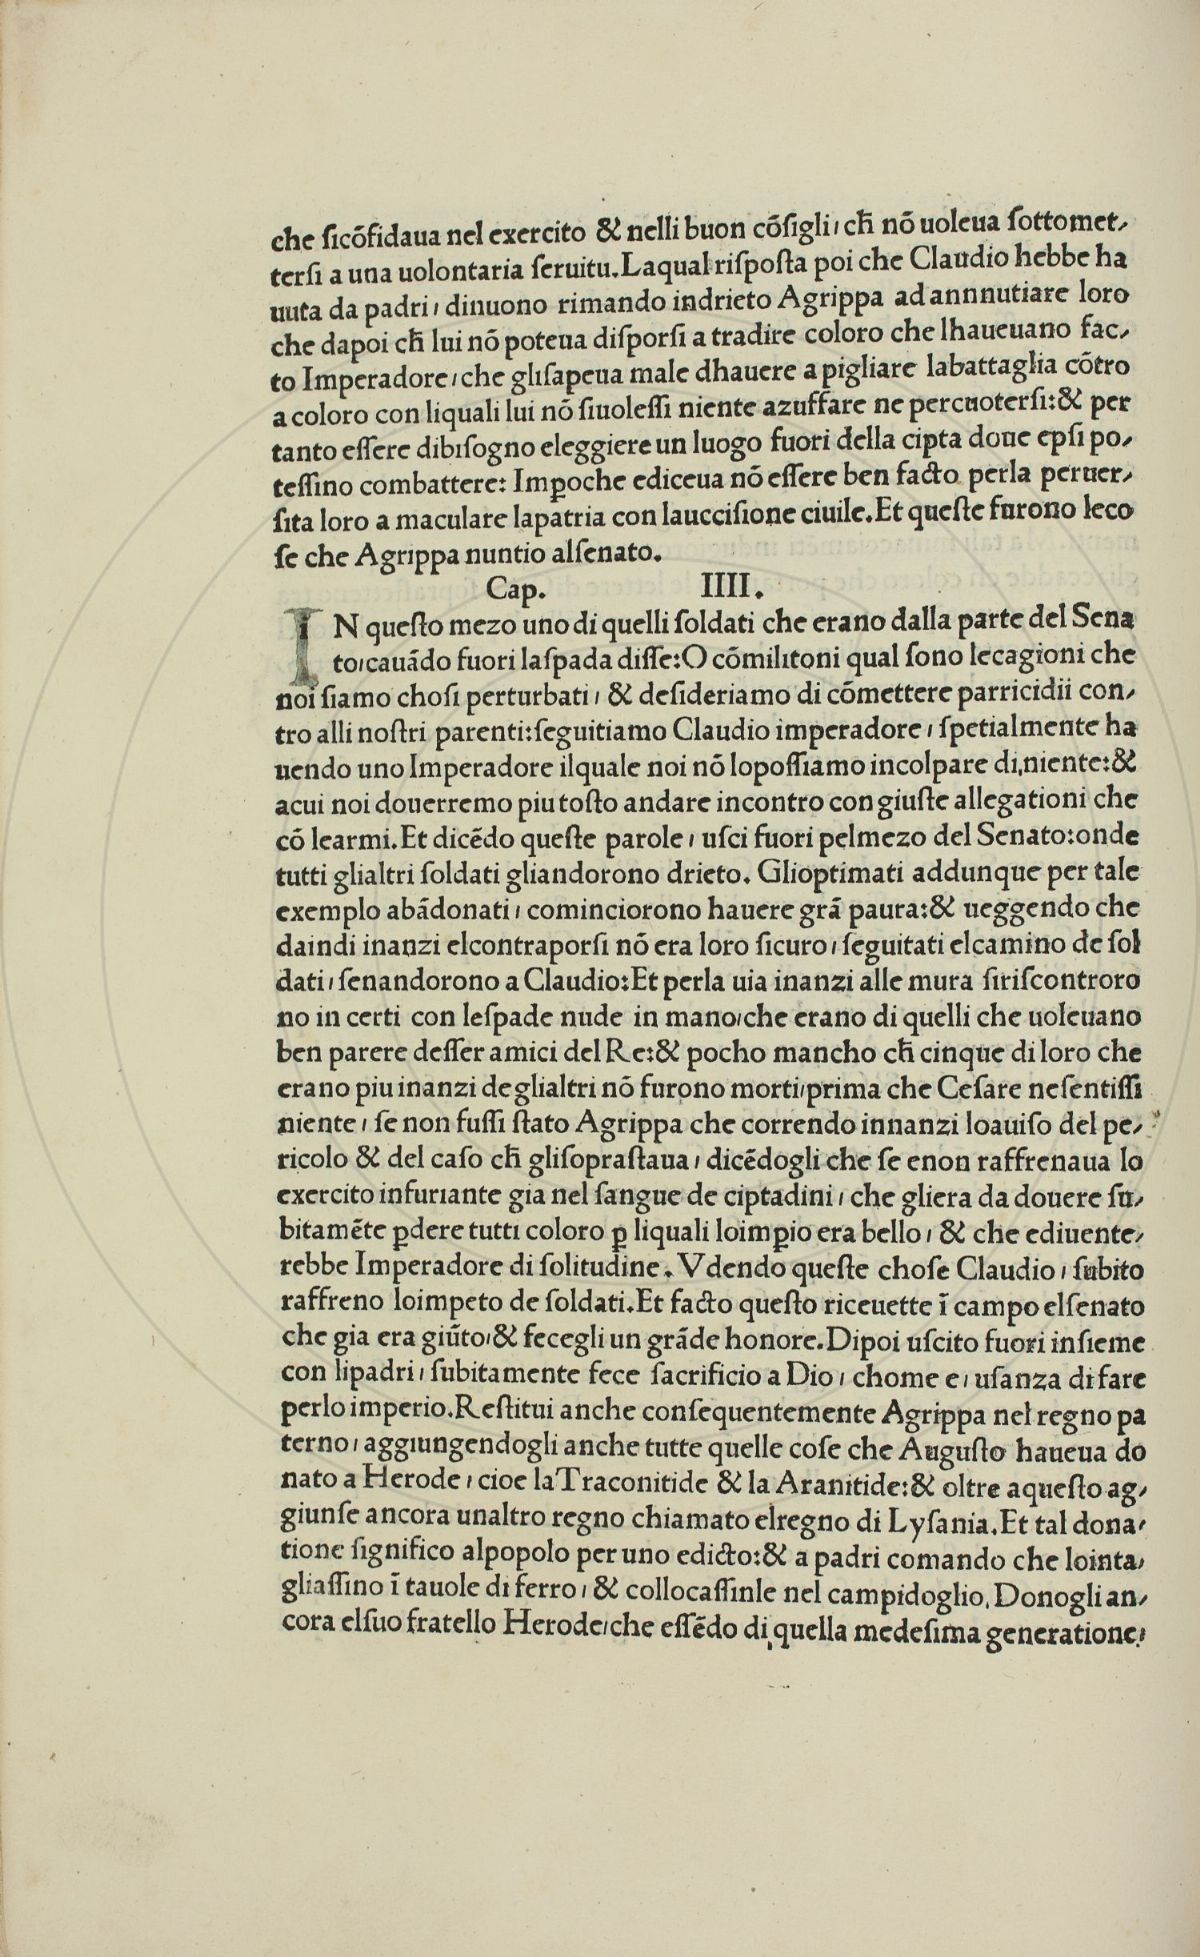 che ſicōfidaua nel exercito & nelli buon cōſigli, ch̄ nō uoleua ſottomet-
terſi a una uolontaria ſeruitu. Laqual riſpoſta poi che Claudio hebbe ha
uuta da padri, dinuono rimando indrieto Agrippa ad annnutiare loro
che dapoi ch̄ lui nō poteua diſporſi a tradire coloro che lhaueuano fac-
to Imperadore, che gliſapeua male dhauere a pigliare labattaglia cōtro
a coloro con liquali lui nō ſiuoleſſi niente azuffare ne percuoterſi: & per
tanto eſſere dibiſogno eleggiere un luogo fuori della cipta doue epſi po-
teſſino combattere: Imꝑoche ediceua nō eſſere ben facto perla peruer-
ſita loro a maculare lapatria con lauccisione ciuile. Et queſte furono leco
ſe che Agrippa nuntio alſenato.
Cap. IIII.
IN queſto mezo uno di quelli ſoldati che erano dalla parte del Sena
to, cauādo fuori laſpada diſſe: O cōmilitoni qual ſono lecagioni che
noi ſiamo choſi perturbati, & deſideriamo di cōmettere parricidii con-
tro alli noſtri parenti: ſeguitiamo Claudio imperadore, ſpetialmente ha
uendo uno Imperadore ilquale noi nō lopoſſiamo incolpare di niente: &
acui noi douerremo piu toſto andare incontro con giuſte allegationi che
cō learmi. Et dicēdo queſte parole, uſci fuori pelmezo del Senato: onde
tutti glialtri ſoldati gliandorono drieto. Glioptimati addunque per tale
exemplo abādonati, cominciorono hauere grā paura: & ueggendo che
daindi inanzi elcontraporſi nō era loro ſicuro, ſeguitati elcamino de ſol
dati, ſenandorono a Claudio: Et perla uia inanzi alle mura ſiriſcontroro
no in certi con leſpade nude in mano, che erano di quelli che uoleuano
ben parere deſſer amici del Re: & pocho mancho ch̄ cinque di loro che
erano piu inanzi deglialtri nō furono morti, prima che Ceſare neſentiſſi
niente, ſe non fuſſi ſtato Agrippa che correndo innanzi loauiſo del pe-
ricolo & del caſo ch̄ gliſopraſtaua, dicēdogli che ſe enon raffrenaua lo
exercito infuriante gia nel ſangue de ciptadini, che gliera da douere ſu-
bitamēte ꝑdere tutti coloro ꝑ liquali loimꝑio era bello, & che ediuente-
rebbe Imperadore di ſolitudine. Vdendo queſte choſe Claudio, ſubito
raffreno loimpeto de ſoldati. Et facto queſto riceuette ī campo elſenato
che gia era giūto, & fecegli un grāde honore. Dipoi uſcito fuori inſieme
con lipadri, ſubitamente fece ſacrificio a Dio, chome e, uſanza di fare
perlo imperio. Reſtitui anche conſequentemente Agrippa nel regno pa
terno, aggiungendogli anche tutte quelle coſe che Auguſto haueua do
nato a Herode, cioe la Traconitide & la Aranitide: & oltre aqueſto ag-
giunſe ancora unaltro regno chiamato elregno di Lyſania. Et tal dona-
tione ſignifico alpopolo per uno edicto: & a padri comando che lointa-
gliaſſino ī tauole di ferro, & collocaſſinle nel campidoglio. Donogli an-
cora elſuo fratello Herode, che eſſēdo di quella medeſima generatione,